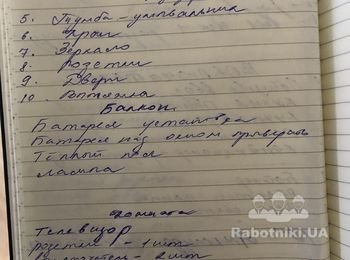 5. Тумба-умывальник
6. Кран
7. Зеркало
8. Розетки
9. Двери
10. Вытяжка
Балкон
Батарея установка
Батарея под окном
Тёплый пол
лампа
комната
Телевизор
розетки - 1 шт
- 2 шт
Rabotniki.UA